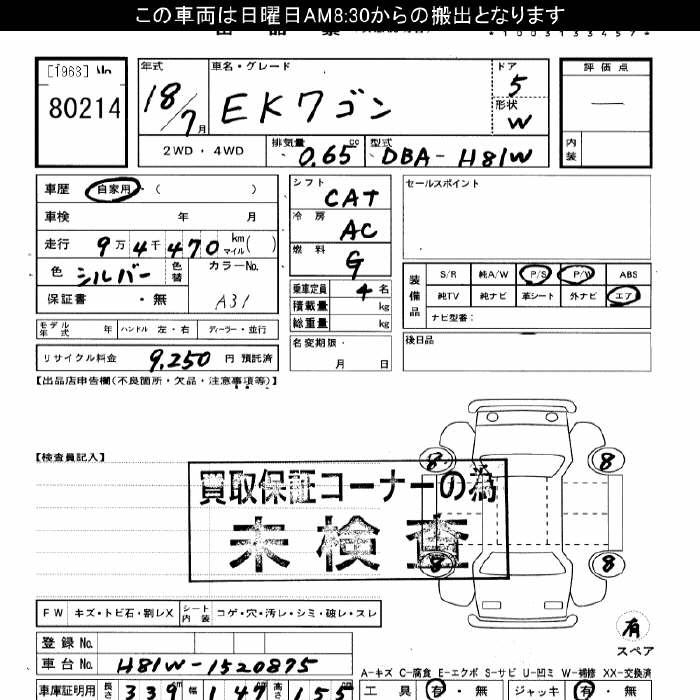 この車両は日曜日AM8:30からの搬出となります
[1963] No
80214
年式 車名・グレード ドア 評価点
18/7月 EKワゴン 5 —
形状 W
2WD・4WD 排気量 0.65 cc 型式 DBA-H81W 内装
車歴 自家用 ( ) シフト CAT セールスポイント
車検 年 月 冷房 AC
走行 9万4千470 km マイル( ) 燃料 G
色 シルバー 色替 カラーNo. A31 乗車定員 4名
装備品 S/R 純A/W P/S P/W ABS
純TV 純ナビ 革シート 外ナビ エア
ナビ型番:
保証書 ・無 積載量 kg
総重量 kg
モデル年式 年 ハンドル 左・右 ディーラー・並行
名変期限・ 月 日 後日品
リサイクル料金 9,250 円 預託済
【出品店申告欄(不良箇所・欠品・注意事項等)】
【検査員記入】
8 8
買取保証コーナーの為
未検査
8 8
FW キズ・トビ石・割レX シート内装 コゲ・穴・汚レ・シミ・破レ・スレ
有
スペア
登録 No.
車台 No. H81W-1520875
A-キズ C-腐食 E-エクボ S-サビ U-凹ミ W-補修 XX-交換済
車庫証明用 長さ 339 幅 147 高さ 155
工具 有・無 ジャッキ 有・無